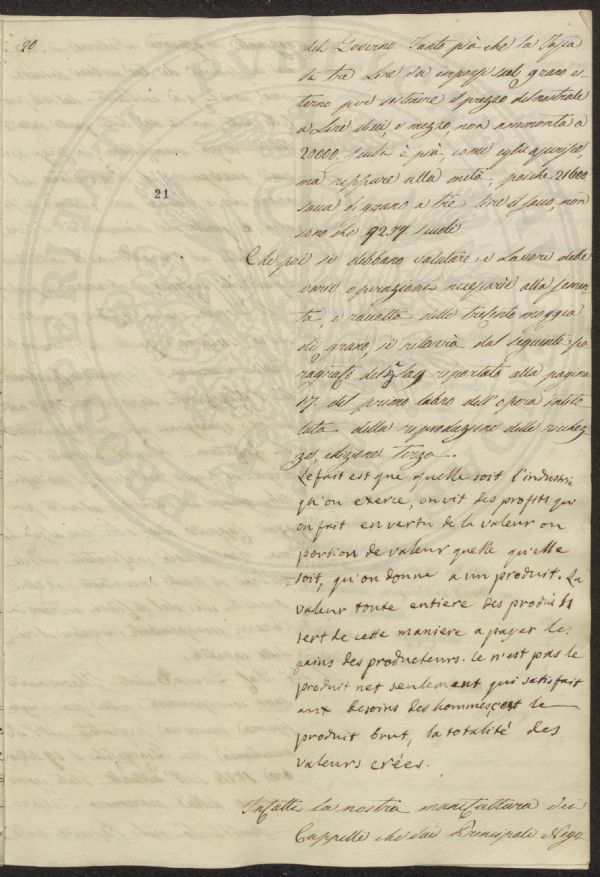 20
21
del Governo. Tanto più che la Tassa
di tre Lire da imporsi sul grano es
terno per sostenere il prezzo del nostrale
a Lire dieci, e mezzo non ammonta a
20000. scudi è più, come egli asserisce,
ma neppure alla metà, poiche 21600
sacca di grano a tre lire il sacco, non
sono che 9257. Scudi
Che poi si debbano valutare, i Lavori delle
varie operazioni necessarie alla semen
ta, e raccolta delle trecento moggia
di grano, si rileverà dal seguente pa
ragrafo del Say riportato alla pagina
17. del primo libro dell' opera intito
lata della riproduzione delle ricchez
ze, edizione Terza.
Le fait est que quelle soit l'industrie
qu'on exerce, on vit des profits qu'
on fait en vertu de la valeur ou
portion de valeur quelle qu'elle
soit, qu'on donne a un produit. La
valeur toute entiere des produits
sert de cette maniere a payer les
gains des producteurs. Ce n'est pas le
produit net seulement qui satisfait
aux besoins des hommes, c'est le
produit brut, la totalité des
valeurs crées.
Infatti la nostra manifattura dei
Cappelli che dai Principali Nego